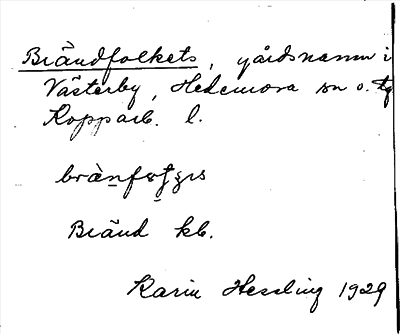 Brändfolkets, gårdsnamn i
Västerby, Hedemora sn o. tg
Kopparb. l.
Bränd kb.
Karin Hessling 1929